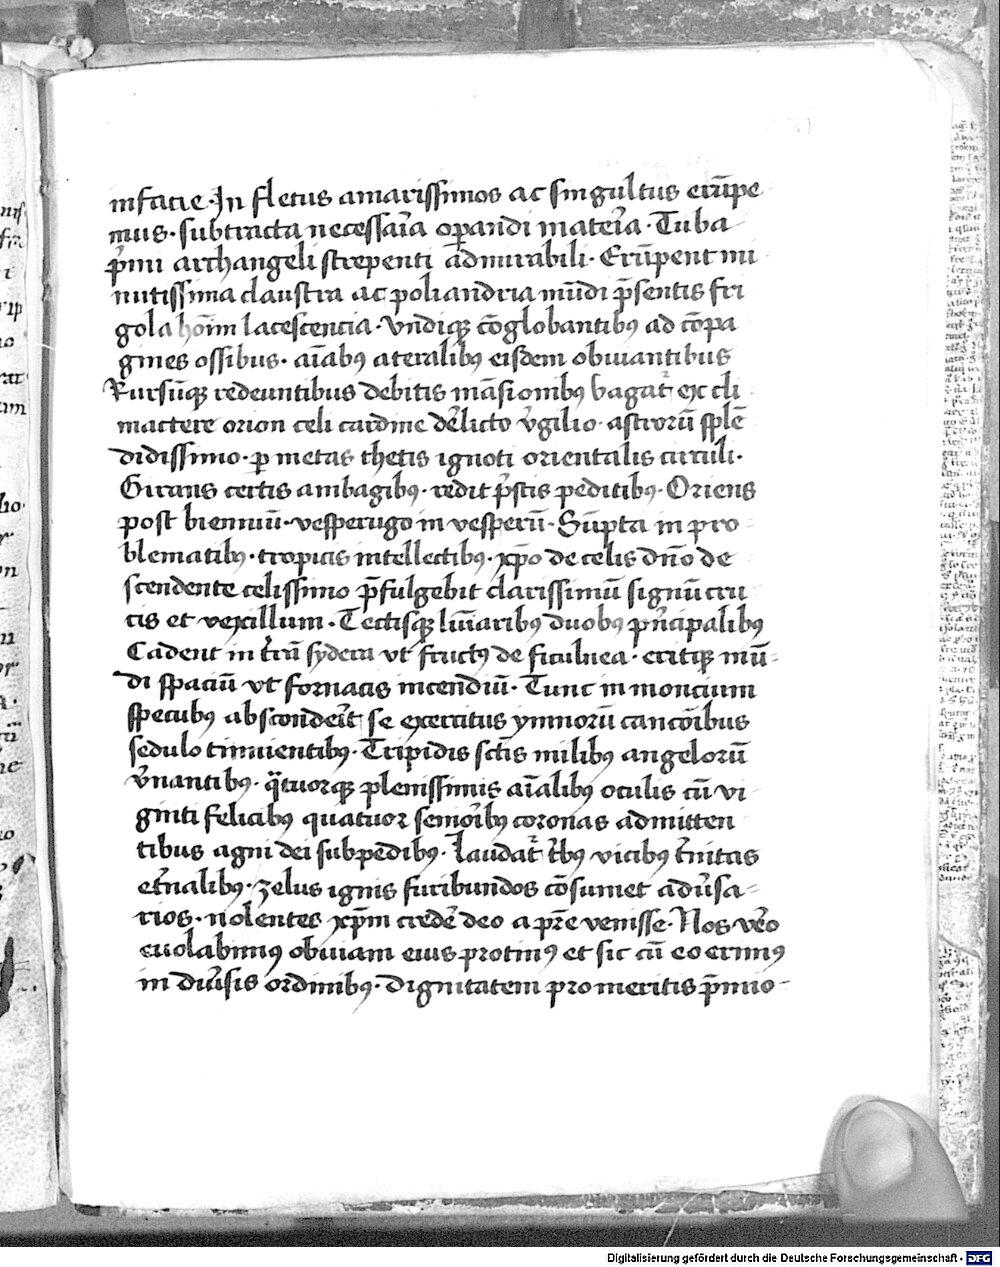 infacie. In fletus amarissimos ac singultus erūpe
mus. subtracta necessar̄ia oꝑandi mater̄ia. Tuba
pͥmi archangeli strepenti admirabili. Erūpent mi
nutissima claustra ac poliandria mūdi p̄sentis fri
gola hoīm lacescencia. vndiqꝫ cōglobantibꝰ ad cōpa
gines ossibus. aīabꝰ ateralibꝰ eisdem obuiantibus
Rursūqꝫ redeuntibus debitis māsionibꝰ vagat᷑ ex cli
mactere orion celi cardine der̄licto v̓gilio. astrorū splē
didissimo. ꝑ metas thetis ignoti orientalis circuli.
Girans certis ambagibꝰ. redit pͥstis peditibꝰ. Oriens
post bienniū. vesperugo in vesperū. Sūpta in pro
blematibꝰ. tropicis intellectibꝰ. xp̄o de celis dn̄o de
scendente celissimo p̄fulgebit clarissimū signū cru
cis et vexillum. Tectisqꝫ lūīaribꝰ duobꝰ pͥncipalibꝰ
Cadent in t̓rā sydera vt fructꝰ de ficulnea. eritqꝫ mū-
di spaciū vt fornacis incendiū. Tunc in moncium
specubꝰ absconder̄t se exercitus ymnorū cancōibus
sedulo tinnientibꝰ. Tripidis sctīs milibꝰ angelorū
v̓nantibꝰ. q̈tuorqꝫ plenissimis aīalibꝰ oculis cū vi
ginti felicibꝰ quatuor senioribꝰ coronas admitten
tibus agni dei subpedibꝰ. Laudat᷑ tͥbꝰ vicibꝰ tͥnitas
et̓nalibꝰ. zelus ignis furibundos cōsumet adu̓sa-
rios. nolentes xp̄m creder̄ deo a pr̄e venisse. Nos v̓o
euolabimꝰ obuiam eius protinꝰ et sic cū eo erimꝰ
in diu̓sis ordinibꝰ. dignitatem pro meritis p̄mio-
Digitalisierung gefördert durch die Deutsche Forschungsgemeinschaft - DFG